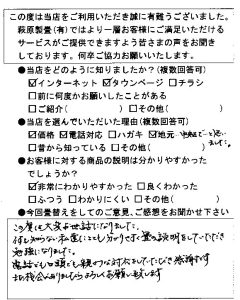 この度は当店をご利用いただき誠に有難うございました。
萩原製畳(有)ではより一層お客様にご満足いただける
サービスがご提供できますよう皆さまの声をお聞き
しております。何卒ご協力お願いいたします。
●当店をどのように知りましたか？(複数回答可)
☑インターネット ☑タウンページ □チラシ
□前に何度かお願いしたことがある
□ご紹介( ) □その他( )
●当店を選んでいただいた理由(複数回答可)
☑価格 ☑電話対応 □ハガキ ☑地元
□昔から知っている □その他( )
●お客様に対する商品の説明は分かりやすかった
でしょうか？
☑非常にわかりやすかった □良くわかった
□ふつう □わかりにくい □その他( )
●今回畳替えをしてのご意見、ご感想をお聞かせ下さい
この度は大変お世話になりました。
何も知らない私達にとても分かりやすく畳の説明をしていただき
勉強になりました。
電話でも口頭でも親切な対応をしていただき感謝です
また機会がありましたらよろしくお願い致します